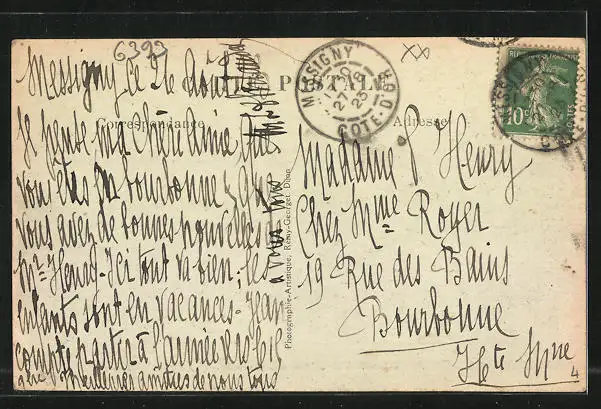 6393
XX
CARTE POSTALE
Correspondance
Adresse
MESSIGNY
COTE-D'OR
Messigny le 26 Août
Je pense ma chère amie que
vous êtes à Bourbonne & que
vous avez de bonnes nouvelles
Mr Henry - Ici tout va bien; les
enfants sont en vacances - Jean
compte partir à l'armée
meilleures amitiés de nous tous
à vous tous
Photographie-Artistique, Rémy-Georget Dijon
Madame Henry
Chez Mme Royer
19 Rue des Bains
Bourbonne
Hte Mne
4
10c